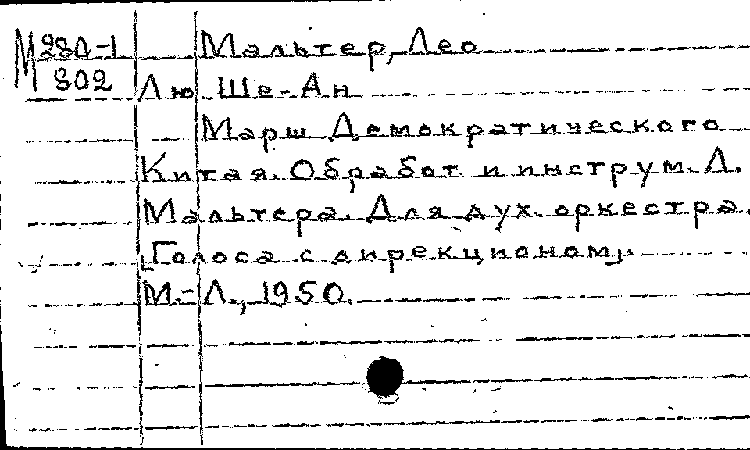 М 280-1 Мальтер, Лео
802 Лю Ше-Ан
Марш Демократического
Китая. Обработ и инструм. Л.
Мальтера. Для дух. оркестра.
[Голоса с дирекционом].
М.-Л., 1950.